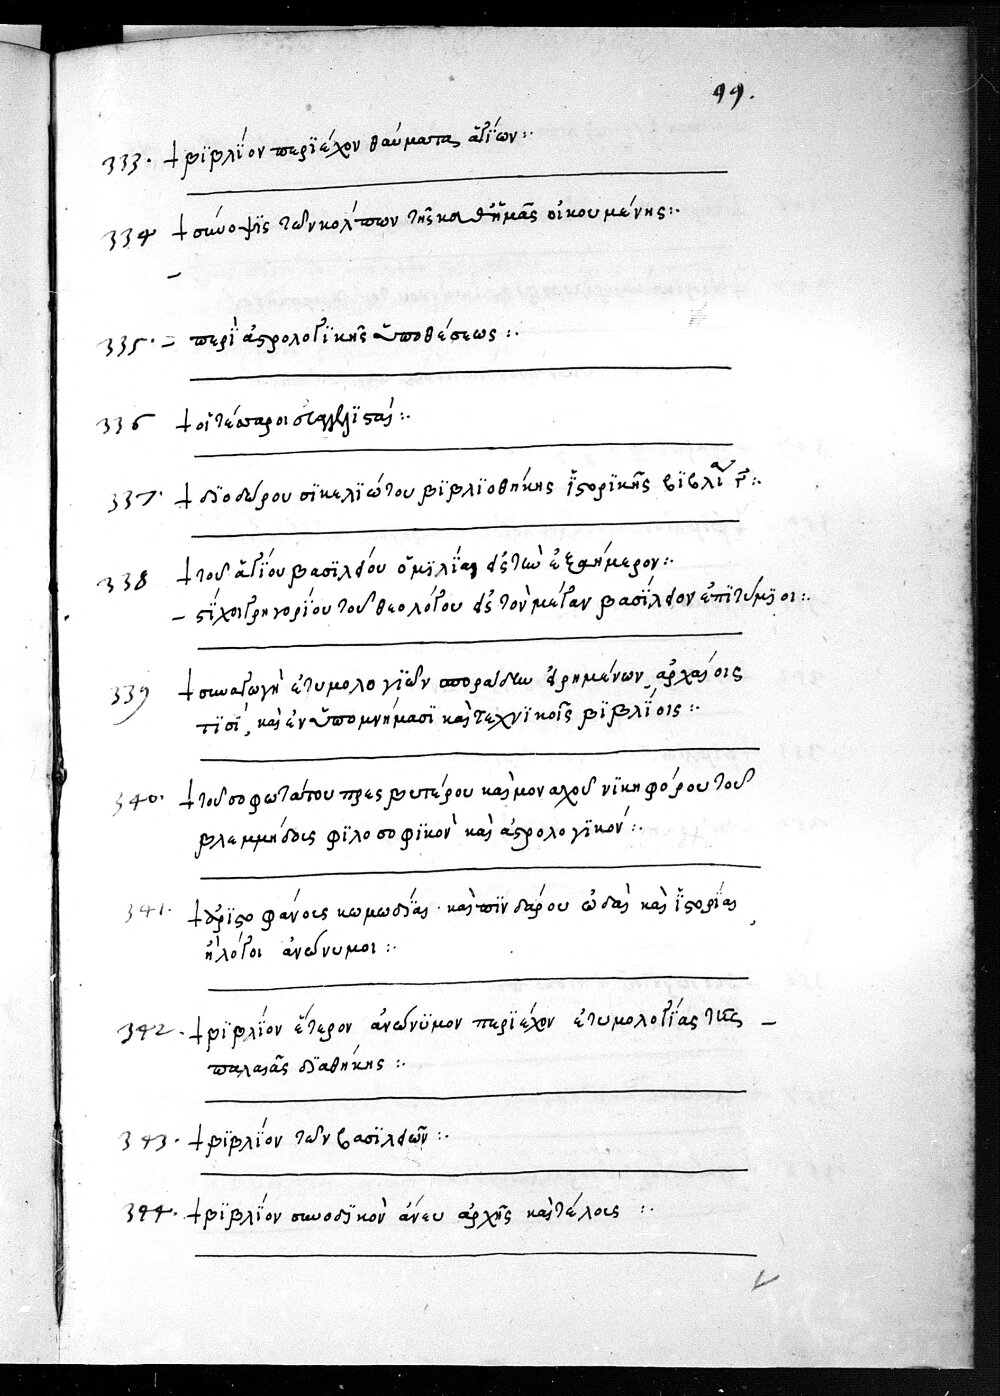 99.
333. + βϊβλΐον περϊέχον θαύματα ἁγΐων :·
334 + σύνοψϊς τῶν κολπων τῆς καθ ἡμᾶς οἰκουμένης :·
–
335. = περῒ ἀστρολογϊκῆς ὑποθέσεως :·
336 + οἱ τέσσαροι :·
337. + δϊοδώρου σϊκελϊώτου βϊβλϊοθήκης ἱστορϊκῆς βϊβλΐα :·
338 + τοῦ ἁγΐου βασϊλείου ὁμϊλΐαι εἰς τὴν ἑξαήμερον :·
– στΐχοι γρηγορΐου τοῦ θεολόγου εἰς τὸν μέγαν βασΐλειον ἐπϊτύμβϊοι :·
339 + συναγωγὴ ἐτυμολογϊῶν σποράδην εἰρημένων ἀρχαίοις
τϊσΐ, καὶ ἐν ὑπομνήμασϊ καὶ τεχνϊκοῖς βϊβλΐοις :·
340. + τοῦ σοφωτάτου πρεσβυτέρου καὶ μοναχοῦ νϊκηφόρου τοῦ
βλεμμήδους φϊλοσοφϊκὸν καὶ ἀστρολογϊκόν :·
341. + ἀρϊστοφάνους κωμωδΐαι · καὶ πϊνδάρου ὠδαὶ καὶ ἱστορΐαι,
ἢ λόγοι ἀνώνυμοι :·
342. + βϊβλΐον ἕτερον ἀνώνϋμον περϊέχον ἐτυμολογΐας τῆς –
παλαιᾶς δϊαθήκης :·
343. + βϊβλΐον τῶν βασϊλειῶν :·
344. + βϊβλΐον συνοδϊκὸν ἄνευ ἀρχῆς καὶ τέλους :·